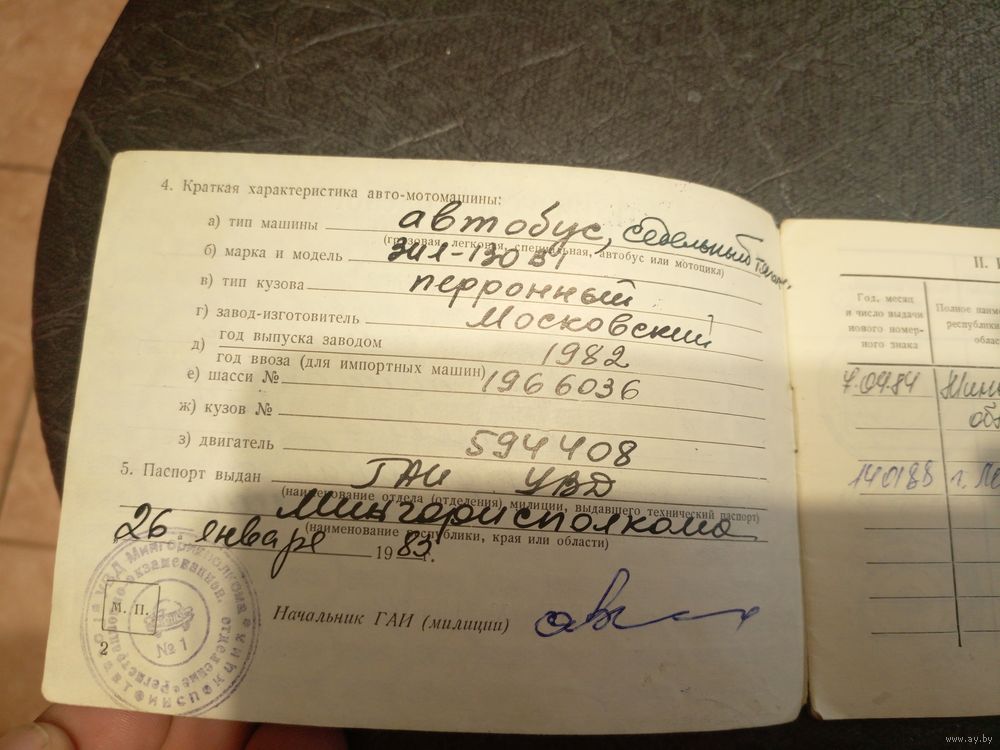 4. Краткая характеристика авто-мотомашины:
а) тип машины автобус, седельный тягач
(грузовая, легковая, специальная, автобус или мотоцикл)
б) марка и модель ЗИЛ-130В1
в) тип кузова перронный
г) завод-изготовитель Московский
д) год выпуска заводом 1982
год ввоза (для импортных машин)
е) шасси № 1966036
ж) кузов №
з) двигатель 594408
5. Паспорт выдан ГАИ УВД
(наименование отдела (отделения) милиции, выдавшего технический паспорт)
Мингорисполкома
(наименование республики, края или области)
26 января 1983 г.
М. П.
№ 1
Начальник ГАИ (милиции)
2
II.
Год, месяц
и число выдачи
нового номер-
ного знака
Полное
республики
7.09.84
140188 г.
www.ay.by